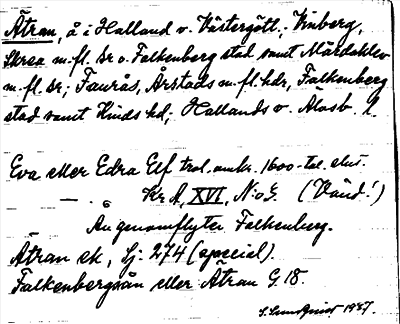 Ätran, å i Halland o. Västergötl.; Vinberg,
Skrea m.fl. sr o. Falkenberg stad samt Mårdaklev
m.fl. sr; Faurås, Årstads m.fl. hdr, Falkenberg
stad samt Kinds hd; Hallands o. Älvsb. l.
Eva eller Edra Elf trol. omkr. 1600-tal. slut.
Kr. A, XVI, N:o G. (Vänd!)
Ån genomflyter Falkenberg.
Ätran ek, Lj. 274 (special).
Falkenbergsån eller Ätran G. 18.
S. Lundqvist 1927.